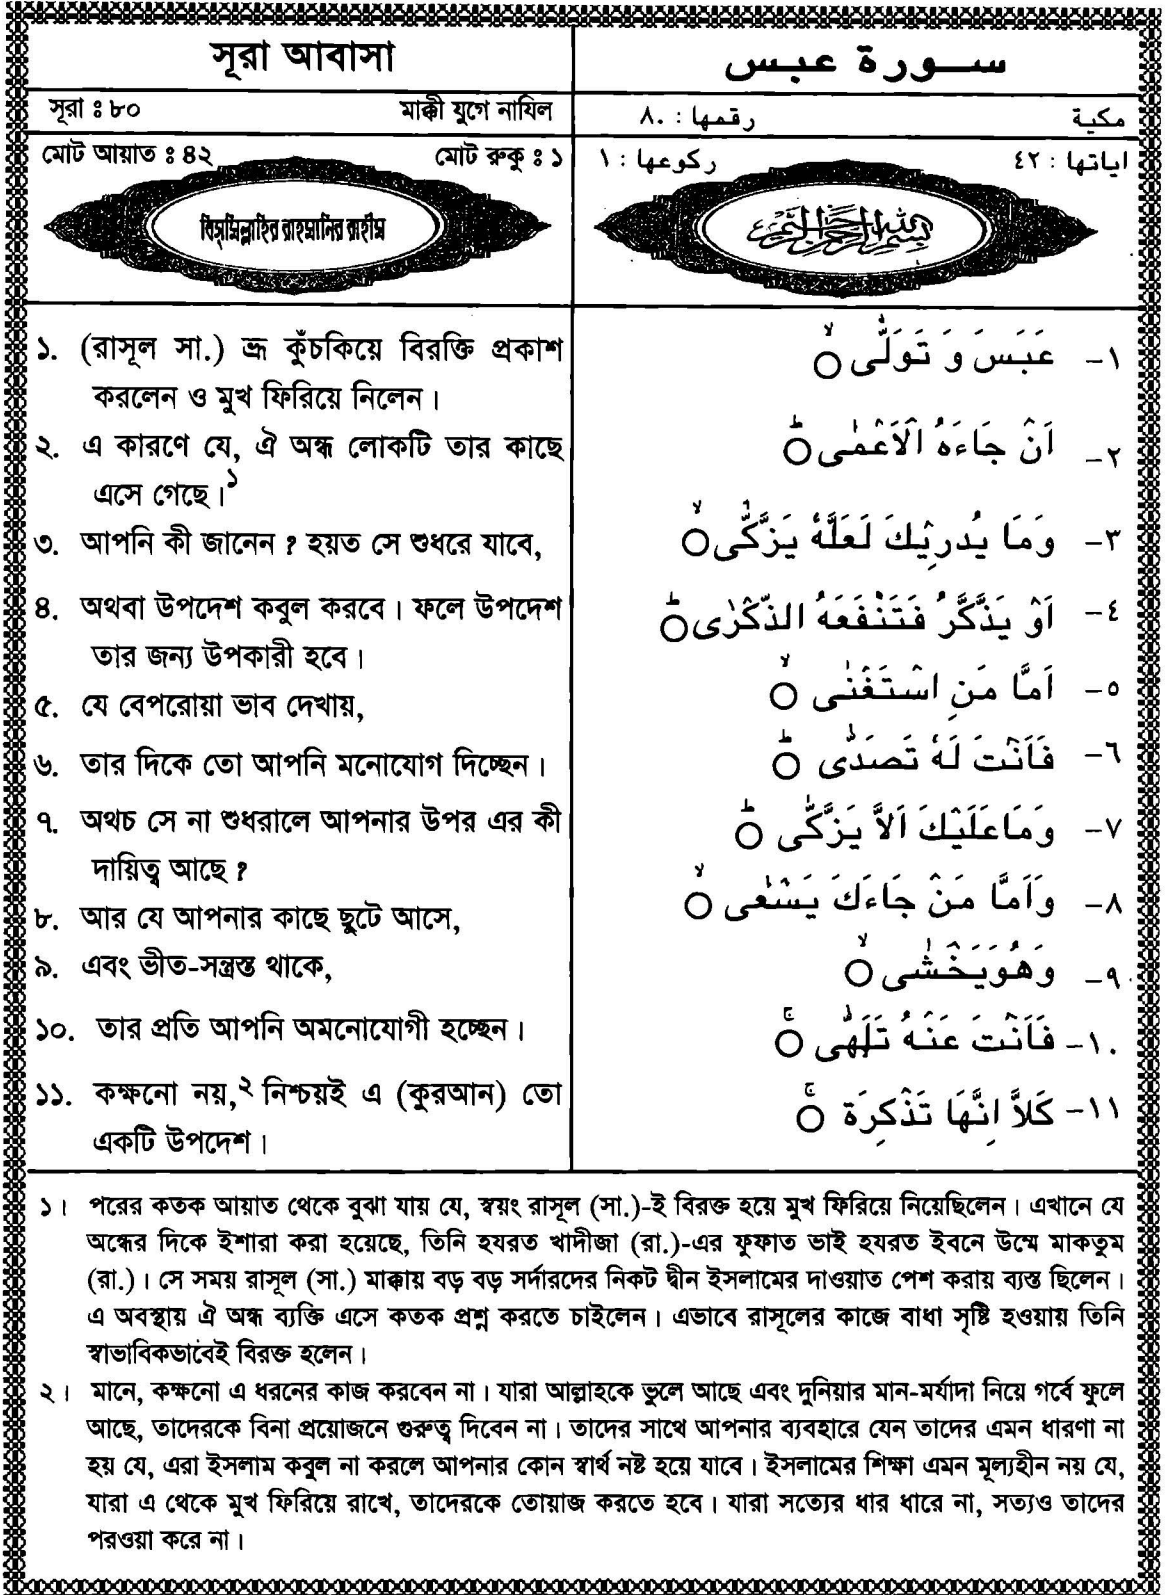 সূরা আবাসা
سورة عبس
সূরা ঃ ৮০ মাক্কী যুগে নাযিল
رقمها : ٨٠ مكية
মোট আয়াত ঃ ৪২ মোট রুকু ঃ ১
ركوعها : ١ اياتها : ٤٢
বিসমিল্লাহির রাহমানির রাহীম
بسم الله الرحمن الرحيم
১. (রাসূল সা.) ভ্রূ কুঁচকিয়ে বিরক্তি প্রকাশ
করলেন ও মুখ ফিরিয়ে নিলেন।
২. এ কারণে যে, ঐ অন্ধ লোকটি তার কাছে
এসে গেছে।১
৩. আপনি কী জানেন ? হয়ত সে শুধরে যাবে,
৪. অথবা উপদেশ কবুল করবে। ফলে উপদেশ
তার জন্য উপকারী হবে।
৫. যে বেপরোয়া ভাব দেখায়,
৬. তার দিকে তো আপনি মনোযোগ দিচ্ছেন।
৭. অথচ সে না শুধরালে আপনার উপর এর কী
দায়িত্ব আছে ?
৮. আর যে আপনার কাছে ছুটে আসে,
৯. এবং ভীত-সন্ত্রস্ত থাকে,
১০. তার প্রতি আপনি অমনোযোগী হচ্ছেন।
১১. কক্ষনো নয়,২ নিশ্চয়ই এ (কুরআন) তো
একটি উপদেশ।
١- عَبَسَ وَ تَوَلّٰى ۙ○
٢- اَنْ جَاءَهُ الْاَعْمٰى ○ؕ
٣- وَمَا يُدْرِيْكَ لَعَلَّهٗ يَزَّكّٰى ۙ○
٤- اَوْ يَذَّكَّرُ فَتَنْفَعَهُ الذِّكْرٰى ○ؕ
٥- اَمَّا مَنِ اسْتَغْنٰى ۙ○
٦- فَاَنْتَ لَهٗ تَصَدّٰى ○ؕ
٧- وَمَا عَلَيْكَ اَلَّا يَزَّكّٰى ○ؕ
٨- وَاَمَّا مَنْ جَاءَكَ يَسْعٰى ۙ○
٩- وَهُوَ يَخْشٰى ۙ○
١٠- فَاَنْتَ عَنْهُ تَلَهّٰى ○ۚ
١١- كَلَّا اِنَّهَا تَذْكِرَة ○ۚ
১। পরের কতক আয়াত থেকে বুঝা যায় যে, স্বয়ং রাসূল (সা.)-ই বিরক্ত হয়ে মুখ ফিরিয়ে নিয়েছিলেন। এখানে যে
অন্ধের দিকে ইশারা করা হয়েছে, তিনি হযরত খাদীজা (রা.)-এর ফুফাত ভাই হযরত ইবনে উম্মে মাকতুম
(রা.)। সে সময় রাসূল (সা.) মাক্কায় বড় বড় সর্দারদের নিকট দ্বীন ইসলামের দাওয়াত পেশ করায় ব্যস্ত ছিলেন।
এ অবস্থায় ঐ অন্ধ ব্যক্তি এসে কতক প্রশ্ন করতে চাইলেন। এভাবে রাসূলের কাজে বাধা সৃষ্টি হওয়ায় তিনি
স্বাভাবিকভাবেই বিরক্ত হলেন।
২। মানে, কক্ষনো এ ধরনের কাজ করবেন না। যারা আল্লাহকে ভুলে আছে এবং দুনিয়ার মান-মর্যাদা নিয়ে গর্বে ফুলে
আছে, তাদেরকে বিনা প্রয়োজনে গুরুত্ব দিবেন না। তাদের সাথে আপনার ব্যবহারে যেন তাদের এমন ধারণা না
হয় যে, এরা ইসলাম কবুল না করলে আপনার কোন স্বার্থ নষ্ট হয়ে যাবে। ইসলামের শিক্ষা এমন মূল্যহীন নয় যে,
যারা এ থেকে মুখ ফিরিয়ে রাখে, তাদেরকে তোয়াজ করতে হবে। যারা সত্যের ধার ধারে না, সত্যও তাদের
পরওয়া করে না।